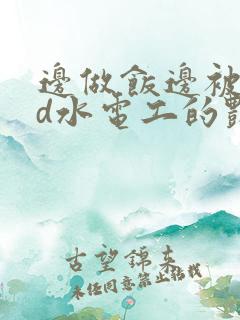 邊做飯邊被
d水電工的
古望錦來
未任同意禁止拈我